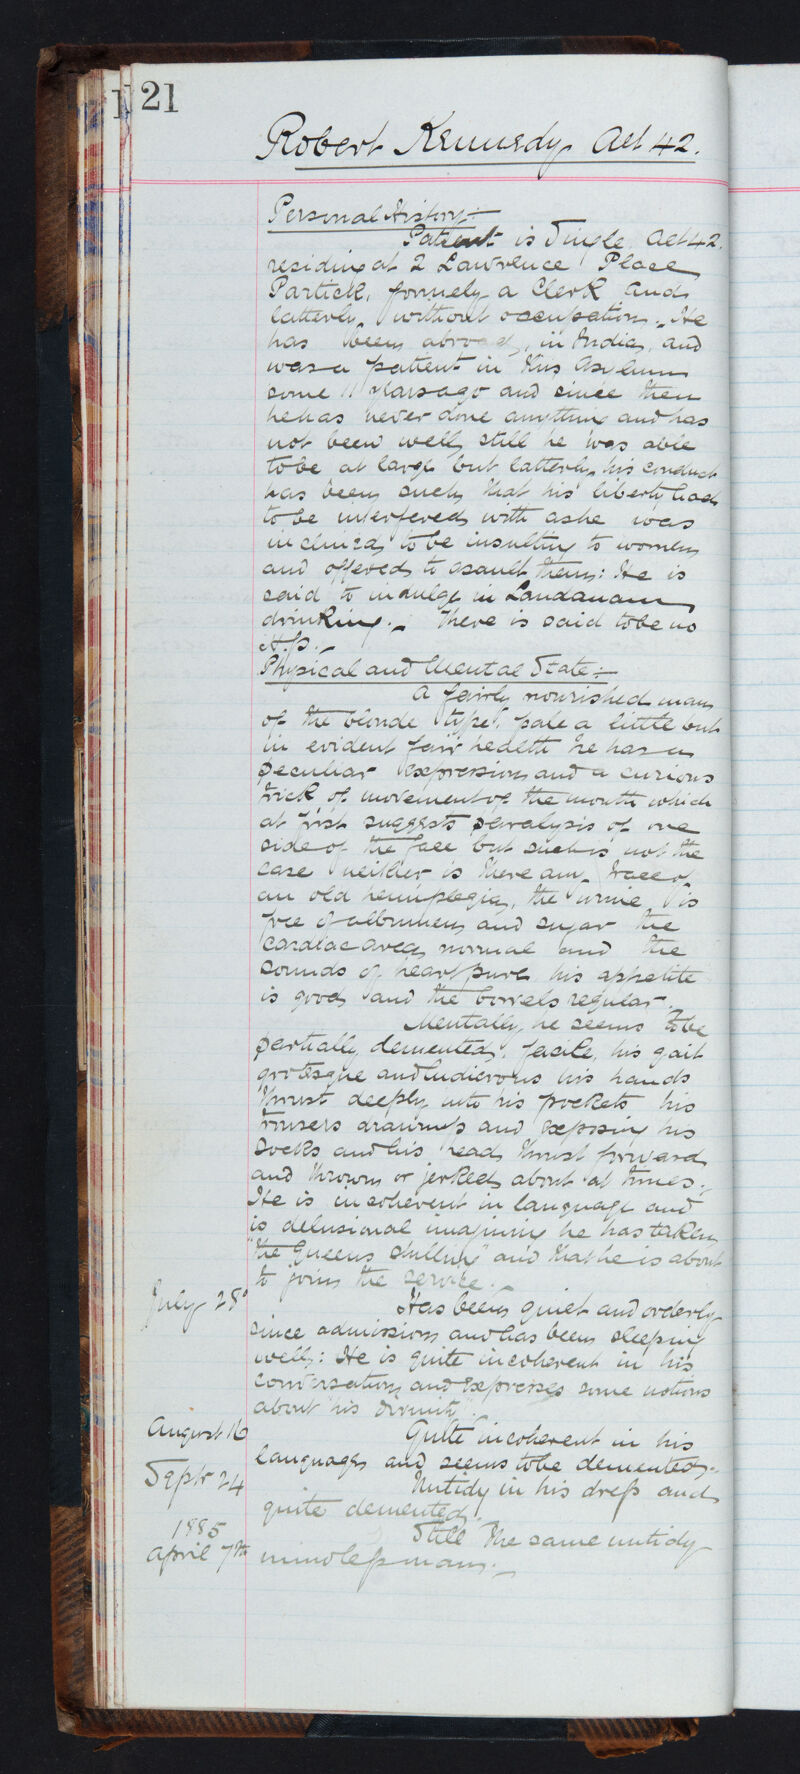 121
Robert Kennedy Aet 42.
Personal History :-
Patient is Single. Aet 42.
residing at 2 Lawrence Place
Partick, formely a Clerk and
latterly without occupation. He
has been abroad, in India, and
was a patient in this Asylum
some 11 years ago and since then
he has never done anything and has
not been well, still he was able
to be at large but latterly his conduct
has been such that his liberty had
to be interfered with as he was
inclined to be insulting to women
and offered to asault them: He is
said to indulge in Laudanum
drinking. There is said to be no
H.p.
Physical and Mental State :-
A fairly nourished man
of the blonde type, pale a little but
in evident fair health he has a
peculiar expression and a curious
trick of movement of the mouth which
at first suggests paralysis of one
side of the face but such is not the
case neither is there any trace of
an old hemiplegia, the urine is
free of albumen and sugar the
cardiac area normal and the
sounds of heart pure his appetite
is good and the bowels regular.
Mentally, he seems to be
partially demented, facile, his gait
grotesque and ludicrous his hands
thrust deeply into his pockets his
trousers drawn up and exposing his
socks and his head thrust forward
and thrown or jerked about at times.
He is incoherent in language and
is delusional imagining he has taken
"the Queens shilling" and that he is about
to join the service.
July 28
Has been quiet and orderly
since admission and has been sleeping
well: He is quite incoherent in his
conversation and expresses some notions
about "his divinity".
August 16
Quite incoherent in his
language and seems to be demented.
Septr 24
Untidy in his dress and
quite demented.
1885
April 7th
Still the same untidy
mindless man.